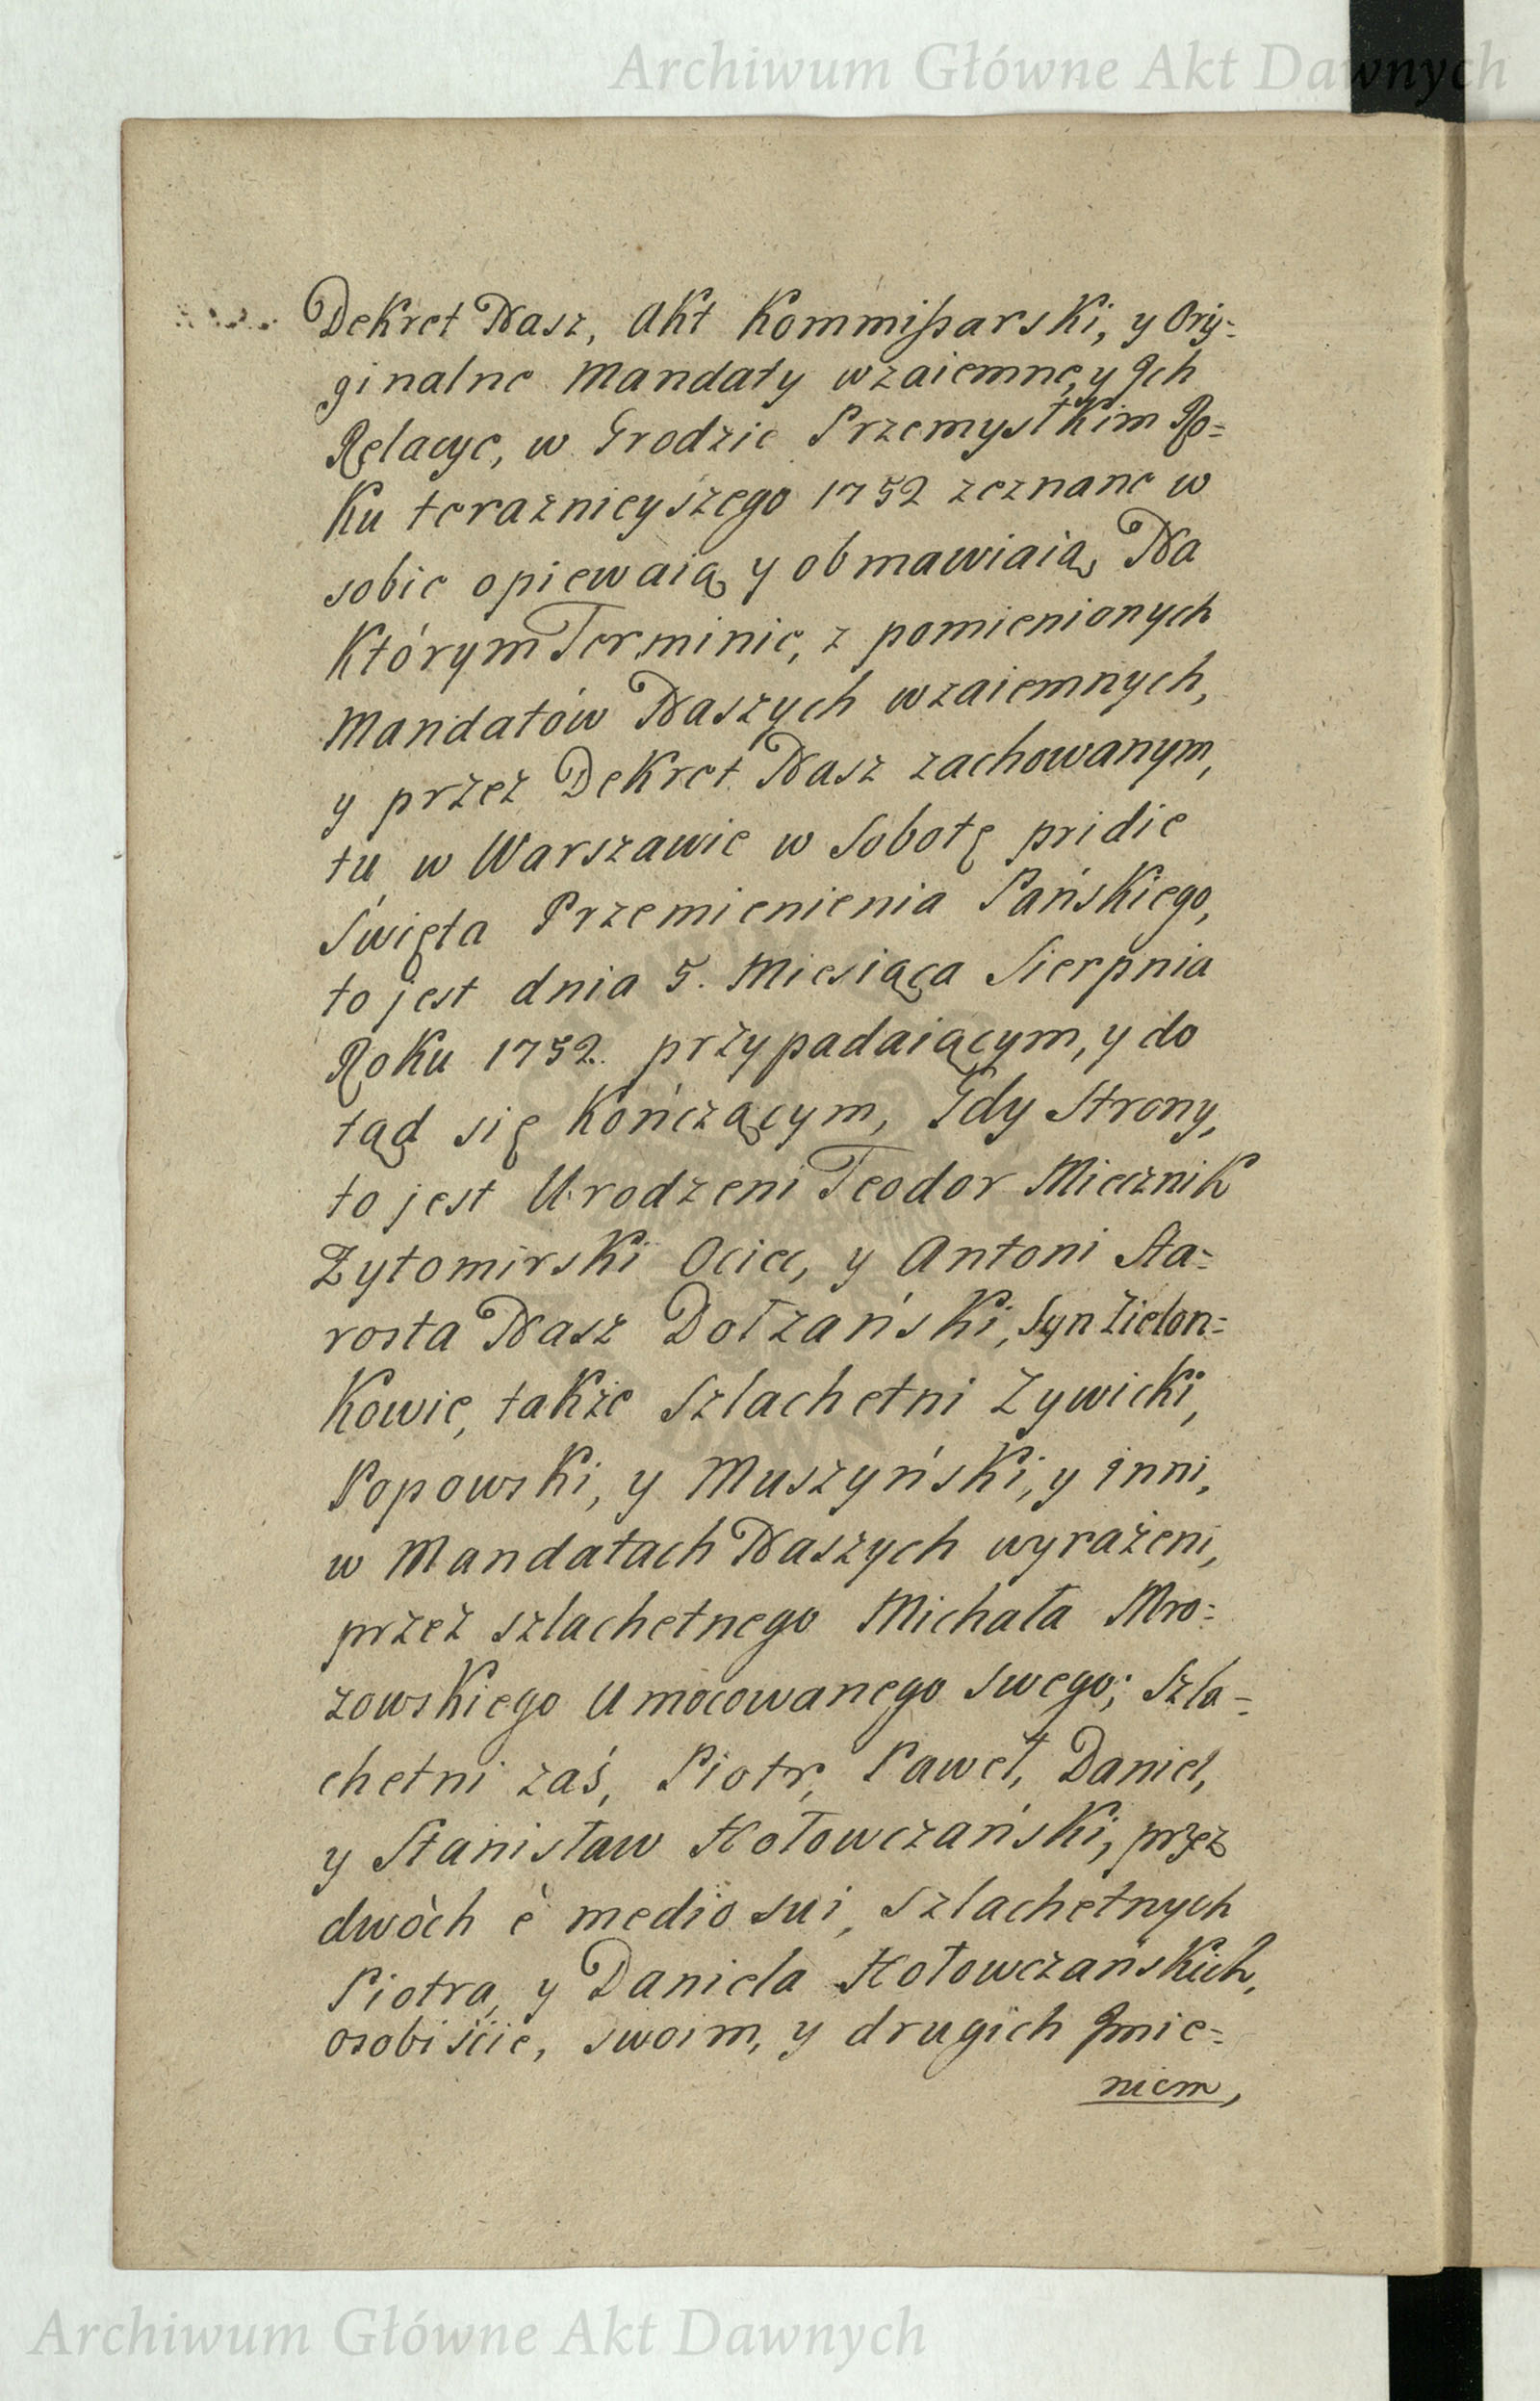 Archiwum Główne Akt Dawnych
Dekret Nasz, Akt Kommißarski, y Ory=
ginalne Mandaty wzaiemne, y Ich
Relacye, w Grodzie Przemyslkim Ro=
ku teraznieyszego 1752 zeznane w
sobie opiewaią y obmawiaią, Na
Którym Terminie, z pomienionych
Mandatów Naszych wzaiemnych,
y przez Dekret Nasz zachowanym,
tu w Warszawie w Sobotę pridie
Święta Przemienienia Pańskiego,
to jest dnia 5. Miesiąca Sierpnia
Roku 1752. przypadaiącym, y do
tąd się Kończącym, Gdy Strony,
to jest Urodzeni Teodor Miecznik
Zytomirski Ociec, y Antoni Sta=
rosta Nasz Dołzański, Syn Zielon=
Kowie, także Szlachetni Zywicki,
Popowski, y Muszyński, y Inni,
w Mandatach Naszych wyrażeni,
przez szlachetnego Michała Mro=
zowskiego Umocowanego swego; Szla=
chetni zaś, Piotr, Paweł, Daniel,
y Stanisław Hołowczański, przez
dwòch è medio sui, szlachetnych
Piotra, y Daniela Hołowczańskich,
osobiście, swoim, y drugich Imie=
niem,
Archiwum Główne Akt Dawnych